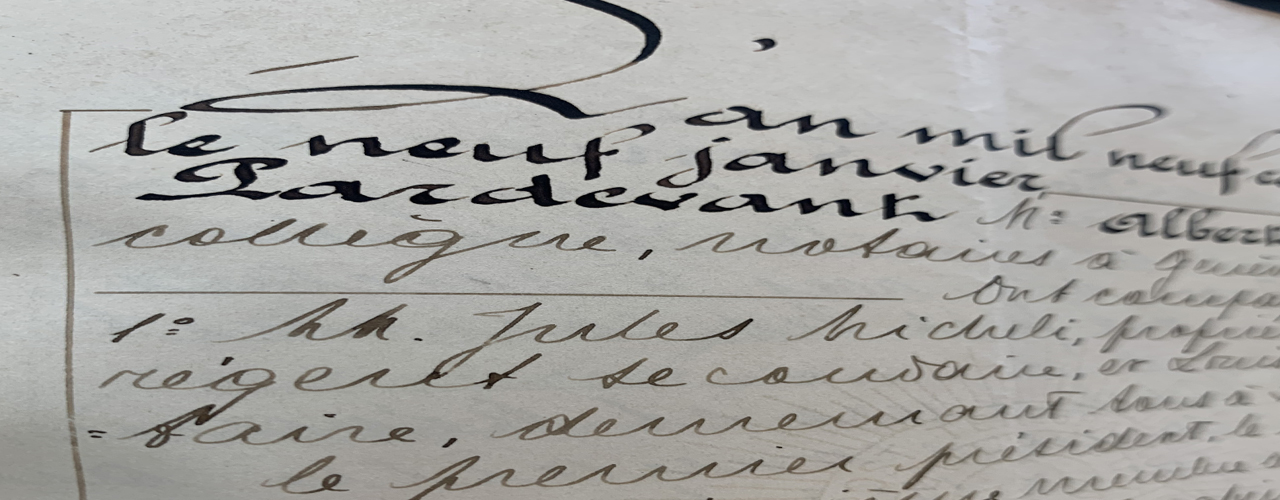 L'an mil neuf c
le neuf janvier
Pardevant Me Albert
collègue, notaires à Genè
Ont compa
1º MM. Jules Micheli, proprié
régent secondaire, et Louis
=taire, demeurant tous à
le premier président, le
membre